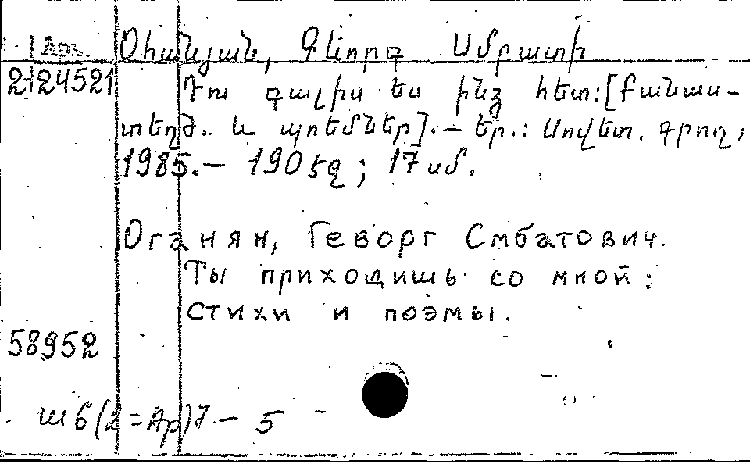 Арм. Օհանյան, Գևորգ Սմբատի
2124521 Դու գալիս ես ինձ հետ: [Բանաս-
տեղծ. և պոեմներ]. – Եր.: Սովետ. գրող,
1985. – 190 էջ ; 17 սմ.
Оганян, Геворг Смбатович.
Ты приходишь со мной:
стихи и поэмы.
58952
ш6(2=Ар)7 – 5